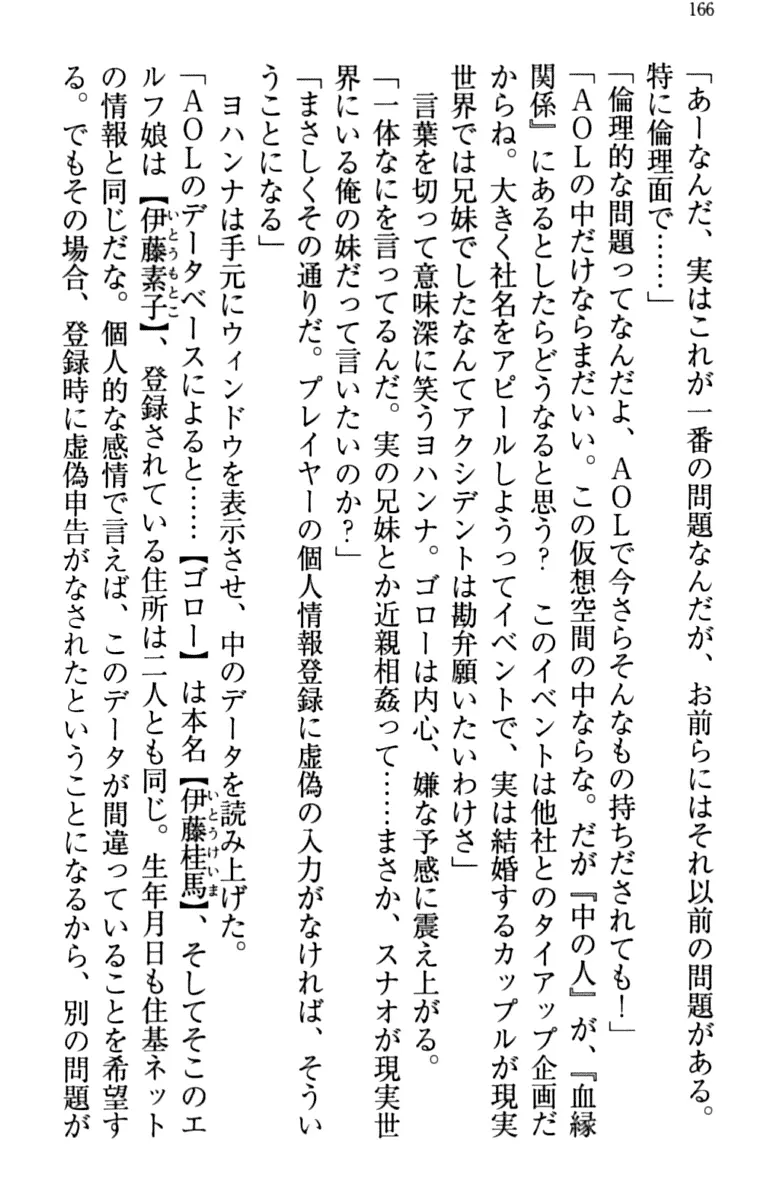 166
「あーなんだ、実はこれが一番の問題なんだが、お前らにはそれ以前の問題がある。
特に倫理面で……」
「倫理的な問題ってなんだよ、AOLで今さらそんなもの持ちだされても！」
「AOLの中だけならまだいい。この仮想空間の中ならな。だが『中の人』が、『血縁
関係』にあるとしたらどうなると思う？　このイベントは他社とのタイアップ企画だ
からね。大きく社名をアピールしようってイベントで、実は結婚するカップルが現実
世界では兄妹でしたなんてアクシデントは勘弁願いたいわけさ」
言葉を切って意味深に笑うヨハンナ。ゴローは内心、嫌な予感に震え上がる。
「一体なにを言ってるんだ。実の兄妹とか近親相姦って……まさか、スナオが現実世
界にいる俺の妹だって言いたいのか？」
「まさしくその通りだ。プレイヤーの個人情報登録に虚偽の入力がなければ、そうい
うことになる」
ヨハンナは手元にウィンドウを表示させ、中のデータを読み上げた。
「AOLのデータベースによると……【ゴロー】は本名【伊藤桂馬】、そしてそこのエ
いとうけいま
ルフ娘は【伊藤素子】、登録されている住所は二人とも同じ。生年月日も住基ネット
いとうもとこ
の情報と同じだな。個人的な感情で言えば、このデータが間違っていることを希望す
る。でもその場合、登録時に虚偽申告がなされたということになるから、別の問題が